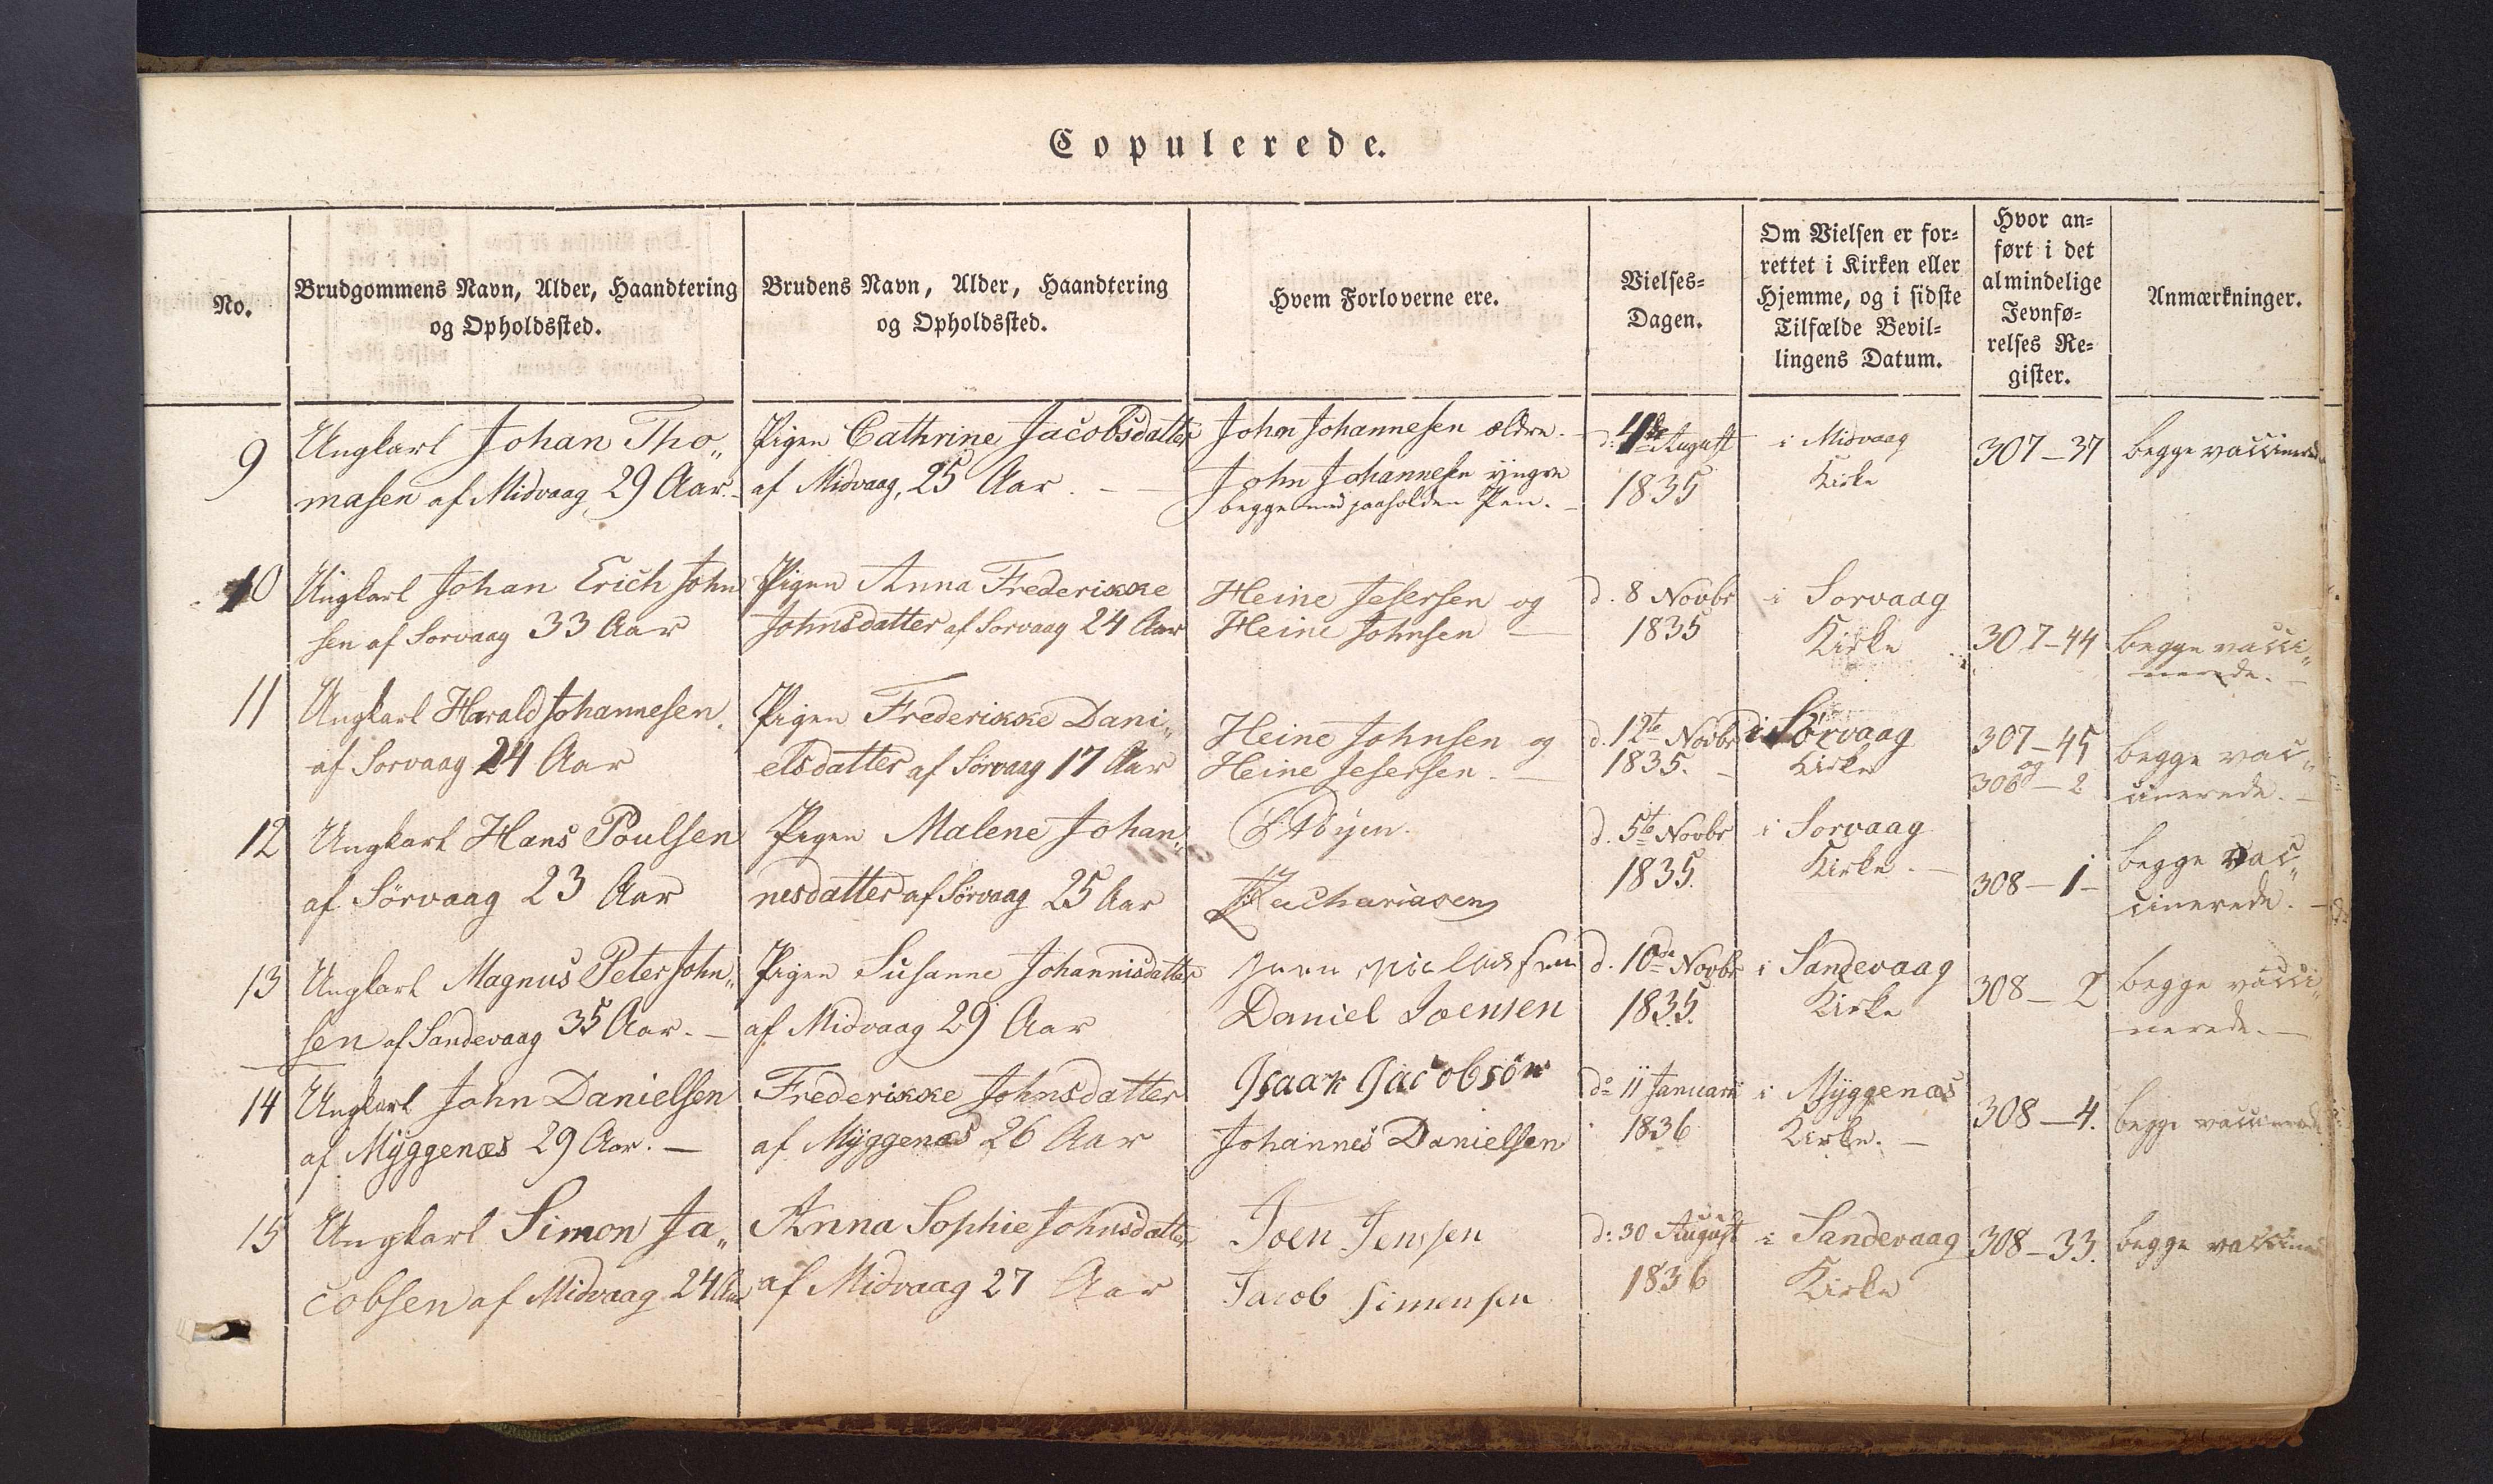 Copulerede.
No.
Brudgommens Navn, Alder, Haandtering
og Opholdssted.
Brudens Navn, Alder, Haandtering
og Opholdssted.
Hvem Forloverne ere.
Vielses-
Dagen.
Om Vielsen er for-
rettet i Kirken eller
Hjemme, og i sidste
Tilfælde Bevil-
lingens Datum.
Hvor an-
ført i det
almindelige
Jevnfø-
relses Re-
gister.
Anmærkninger.
9
Ungkarl Johan Tho„
masen af Midvaag, 29 Aar.-
Pigen Cathrine Jacobsdatter
af Midvaag, 25 Aar.
John Johannesen ældre.
John Johannesen yngre
begge med paaholden Pen.
d: 4de August
1835
i Midvaag
Kirke
307-37
begge vaccinerede
10
Ungkarl Johan Erich John
sen af Sorvaag 33 Aar
Pigen Anna Frederikke
Johnsdatter af Sorvaag 24 Aar
Heine Jesersen og
Heine Johnsen
d. 8 Novbr
1835
i Sorvaag
Kirke
307-44
begge vacci„
nerede.
11
Ungkarl Harald Johannesen
af Sorvaag 24 Aar
Pigen Frederikke Dani„
elsdatter af Sørvaag 17 Aar
Heine Johnsen og
Heine Jesersen.
d. 12te Novbr
1835.
i Sørvaag
Kirke
307-45
og
306-2
begge vac„
cinerede.
12
Ungkarl Hans Poulsen
af Sörvaag 23 Aar
Pigen Malene Johan„
nesdatter af Sörvaag 25 Aar
Zachariasen
d. 5te Novbr
1835.
i Sorvaag
Kirke.
308-1-
begge vac„
cinerede.
13
Ungkarl Magnus Peter John„
sen af Sandevaag 35 Aar.
Pigen Susanne Johannisdatter
af Midvaag 29 Aar
Daniel Joensen
d. 10de Novbr
1835.
i Sandevaag
Kirke
308-2
begge vacci„
nerede.
14
Ungkarl John Danielsen
af Mÿggenæs 29 Aar.
Frederikke Johnsdatter
af Mÿggenæs 26 Aar
Isaak Jacobsön
Johannes Danielsen
d= 11 Januari
1836
i Mÿggenæs
Kirke.
308-4.
begge vaccinerede
15
Ungkarl Simon Ja„
cobsen af Midvaag 24 Aar
Anna Sophie Johnsdatter
af Midvaag 27 Aar
Joen Jensen
Jacob Simonsen
d: 30 August
1836
i Sandevaag
Kirke
308-33.
begge vaccinered